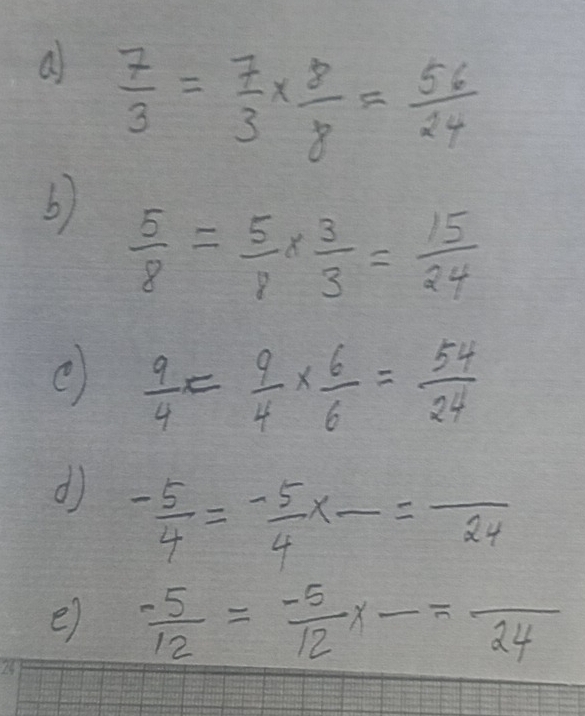 a) 7/3 = 7/3 × 8/8 = 56/24
b) 5/8 = 5/8 × 3/3 = 15/24
c) 9/4 = 9/4 × 6/6 = 54/24
d) -5/4 = -5/4 × — = —/24
e) -5/12 = -5/12 × — = —/24
24